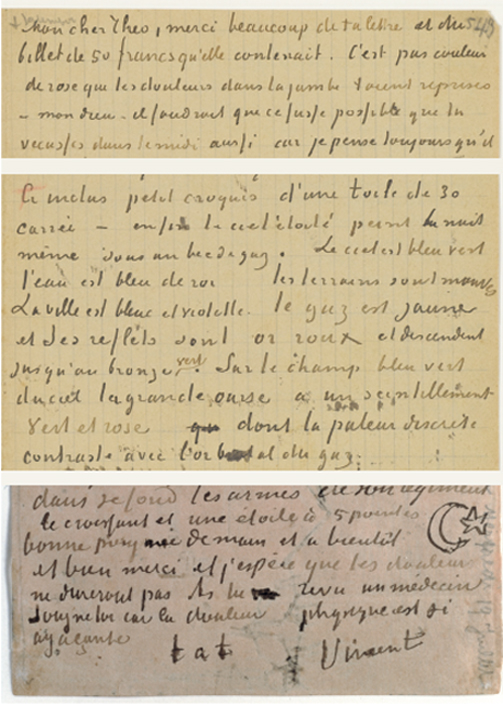 Mon cher Theo, merci beaucoup de ta lettre et du
billet de 50 francs qu'elle contenait. C'est pas couleur
de rose que les douleurs dans la jambe t'aient reprises
– mon dieu – il faudrait que ce fusse possible que tu
vecusses dans le midi aussi car je pense toujours qu'il
Ci inclus petit croquis d'une toile de 30
carrée – enfin le ciel étoilé peint la nuit
même sous un bec de gaz. Le ciel est bleu vert
l'eau est bleu de roi les terrains sont mauves
La ville est bleue et violette. le gaz est jaune
et des reflets sont or roux et descendent
jusqu'au bronze vert. Sur le champ bleu vert
du ciel la grande ourse a un scintillement
vert et rose dont la paleur discrète
contraste avec l'or brutal du gaz.
dans le fond les armes de son régiment
le croissant et une étoile à 5 pointes
bonne poignée de main et a bientôt
et bien merci et j'espère que les douleurs
ne dureront pas As tu revu un médecin
Soigne toi car la douleur physique est si
agaçante
t. à t. Vincent